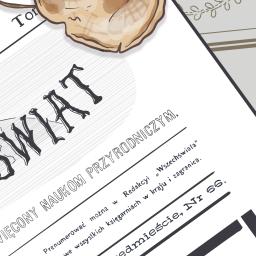 To
ŚWIAT
WIĘCONY NAUKOM PRZYRODNICZYM.
Prenumerować można w Redakcyi „Wszechświata"
we wszystkich księgarniach w kraju i zagranicą.
edmieście, Nr 66.